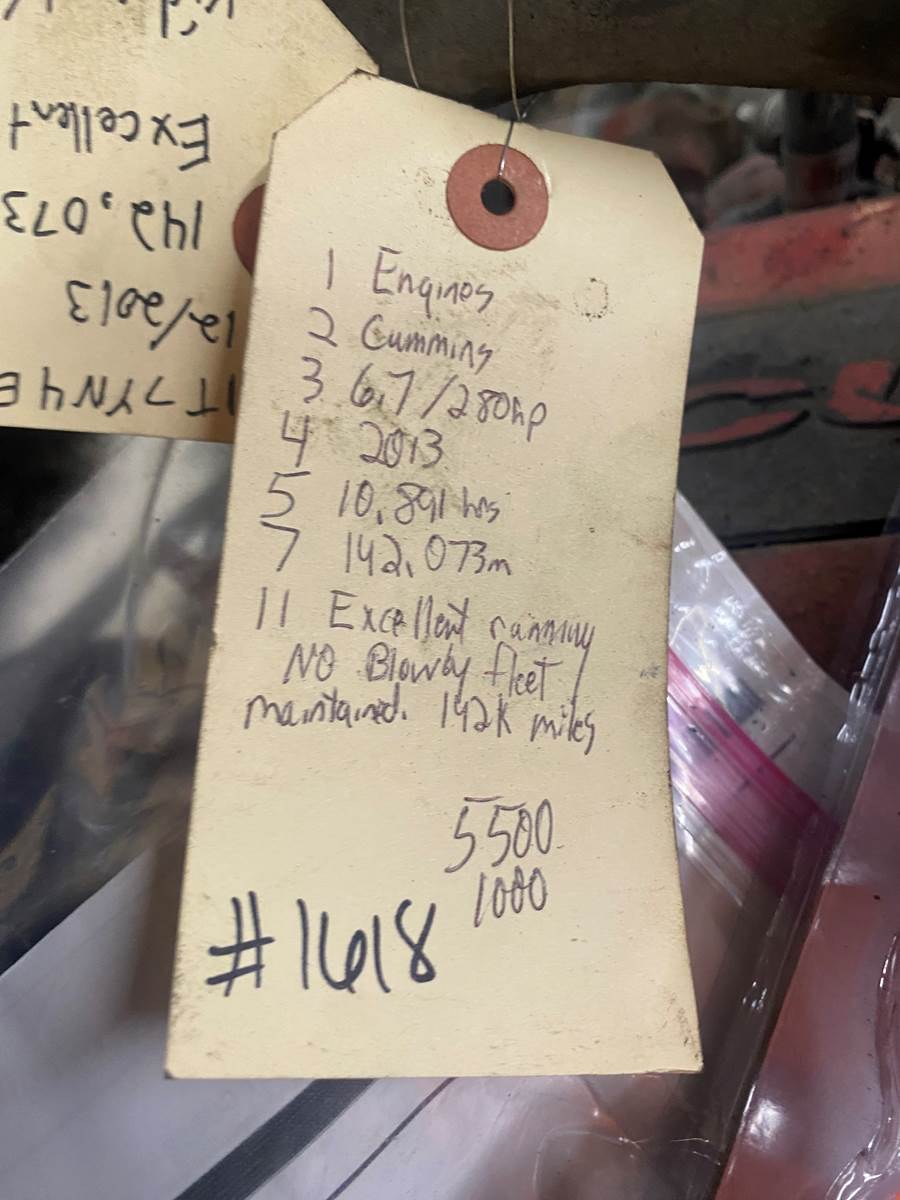 1 Engines
2 Cummins
3 6.7/280hp
4 2013
5 10,891 hrs
7 142,073m
11 Excellent running
NO Blowby fleet
maintained. 142K miles
5500
1000
#1618
1T7YN4E
12/2013
142,073
Excellent